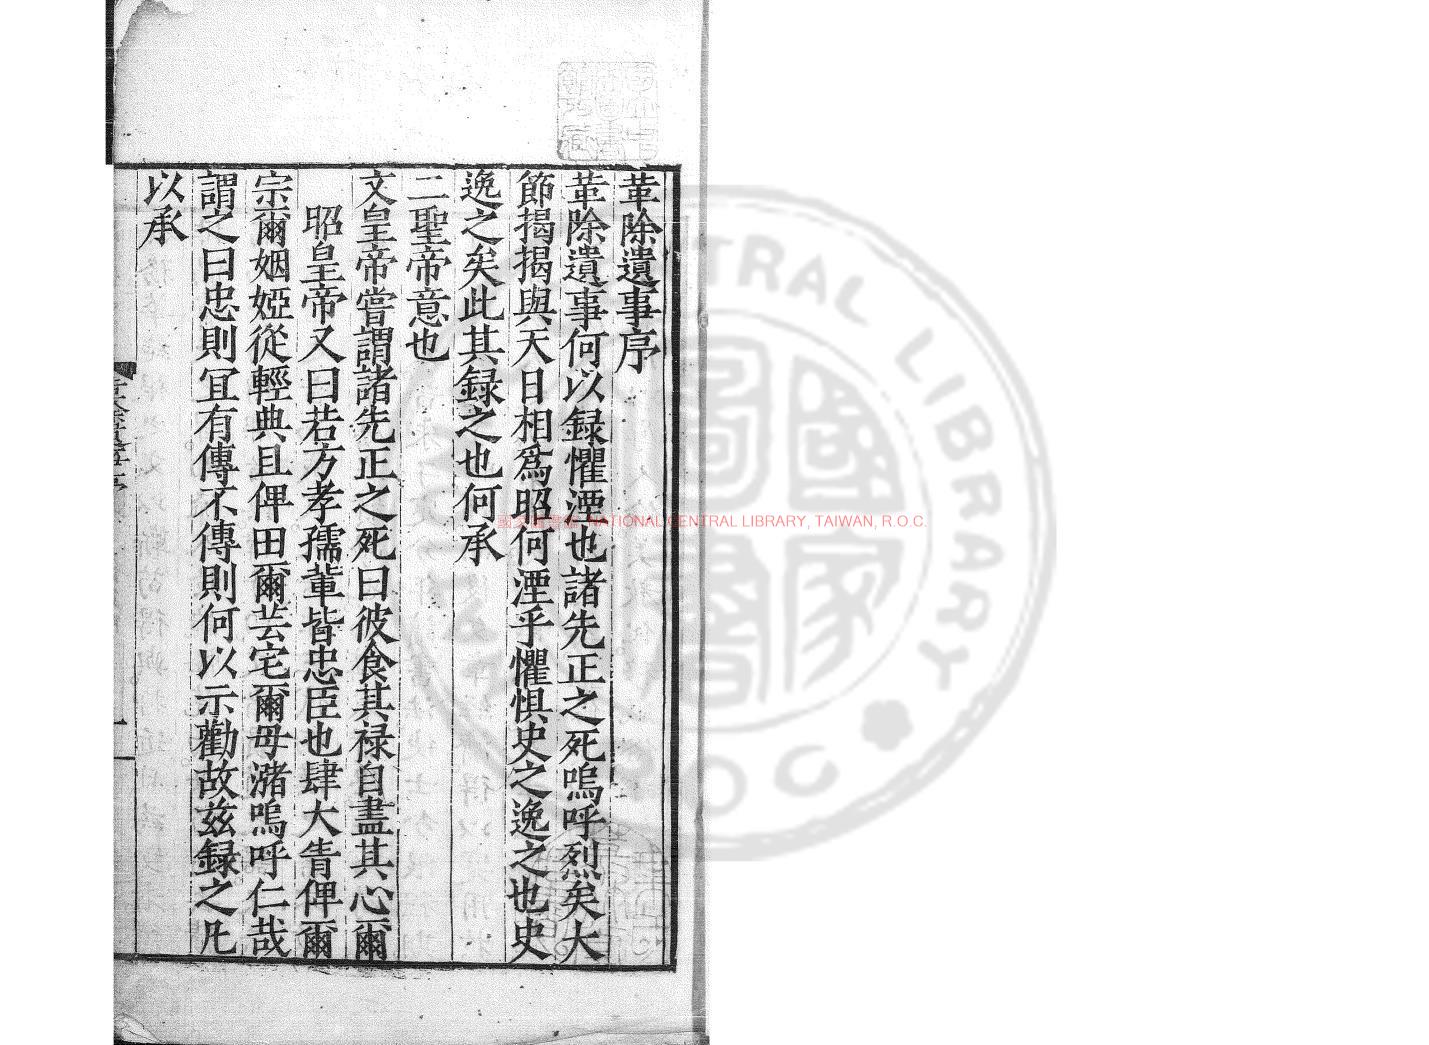 革除遺事序
革除遺事何以録懼湮也諸先正之死嗚呼烈矣大
節揭揭與天日相爲昭何湮乎懼惧史之逸之也史
逸之矣此其録之也何承
二聖帝意也
文皇帝嘗謂諸先正之死曰彼食其禄自盡其心爾
昭皇帝又曰若方孝孺輩皆忠臣也肆大眚俾爾
宗爾姻婭從輕典且俾田爾芸宅爾毋瀦嗚呼仁哉
謂之曰忠則冝有傳不傳則何以示勸故茲録之凡
以承
國家圖書館 NATIONAL CENTRAL LIBRARY, TAIWAN, R.O.C.